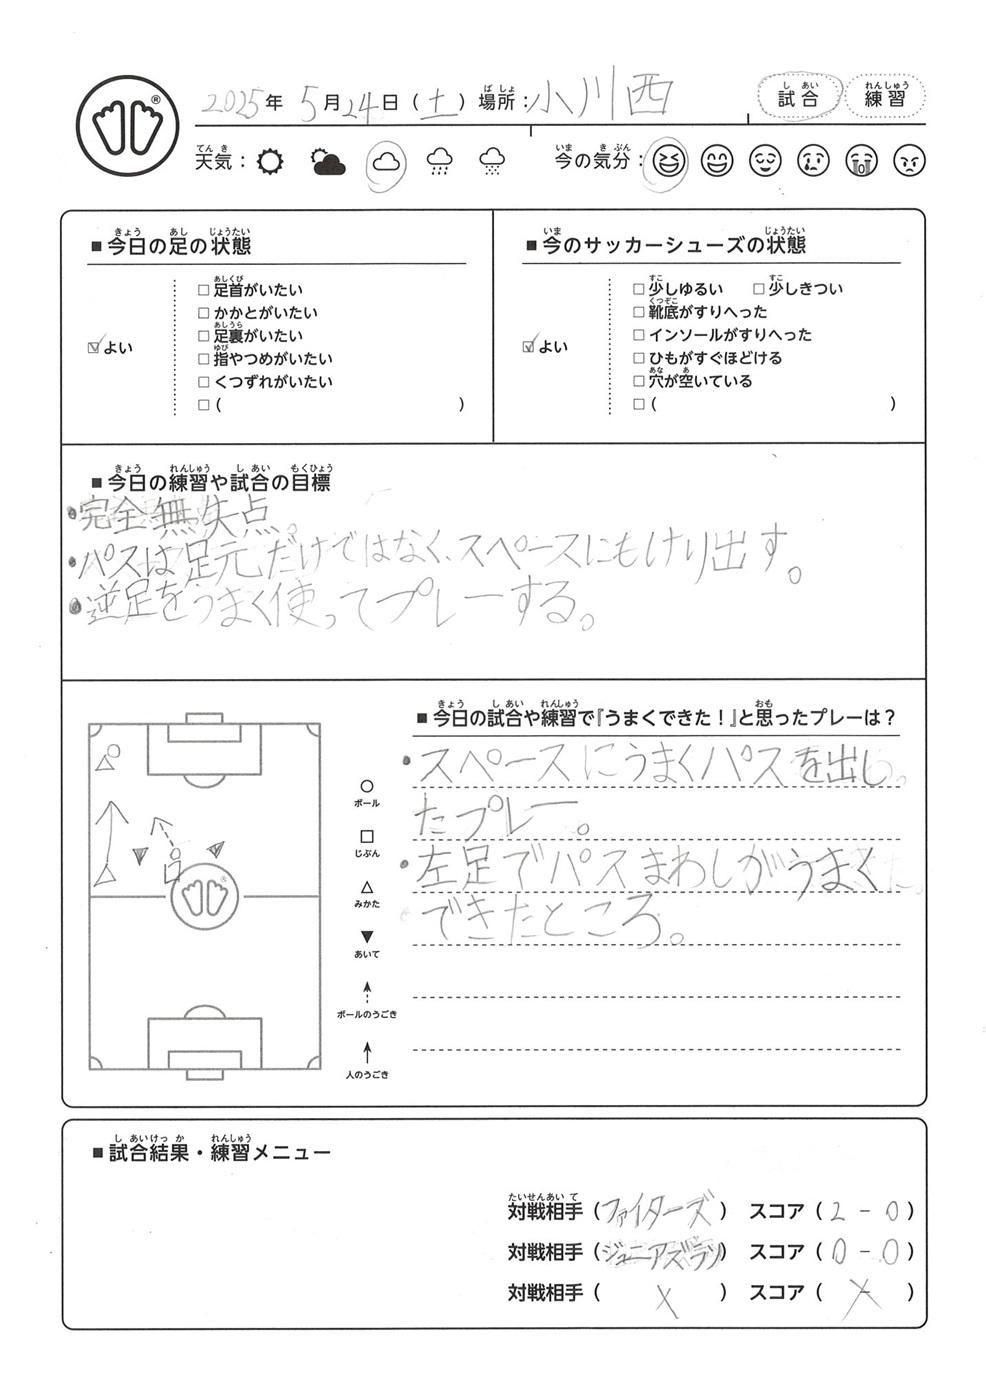 2025年 5月24日（土）場所：小川西 試合 練習
天気： 今の気分：
■今日の足の状態
□足首がいたい
□かかとがいたい
□足裏がいたい
☑よい
□指やつめがいたい
□くつずれがいたい
□（ ）
■今のサッカーシューズの状態
□少しゆるい □少しきつい
□靴底がすりへった
□インソールがすりへった
☑よい
□ひもがすぐほどける
□穴が空いている
□（ ）
■今日の練習や試合の目標
・完全無失点。
・パスは足元だけではなく、スペースにもけり出す。
・逆足をうまく使ってプレーする。
■今日の試合や練習で『うまくできた！』と思ったプレーは？
・スペースにうまくパスを出し
たプレー。
・左足でパスまわしがうまく
できたところ。
○
ボール
□
じぶん
△
みかた
▼
あいて
ボールのうごき
人のうごき
■試合結果・練習メニュー
対戦相手（ファイターズ） スコア（2 - 0）
対戦相手（ジュニアズ） スコア（0 - 0）
対戦相手（ X ） スコア（ X ）